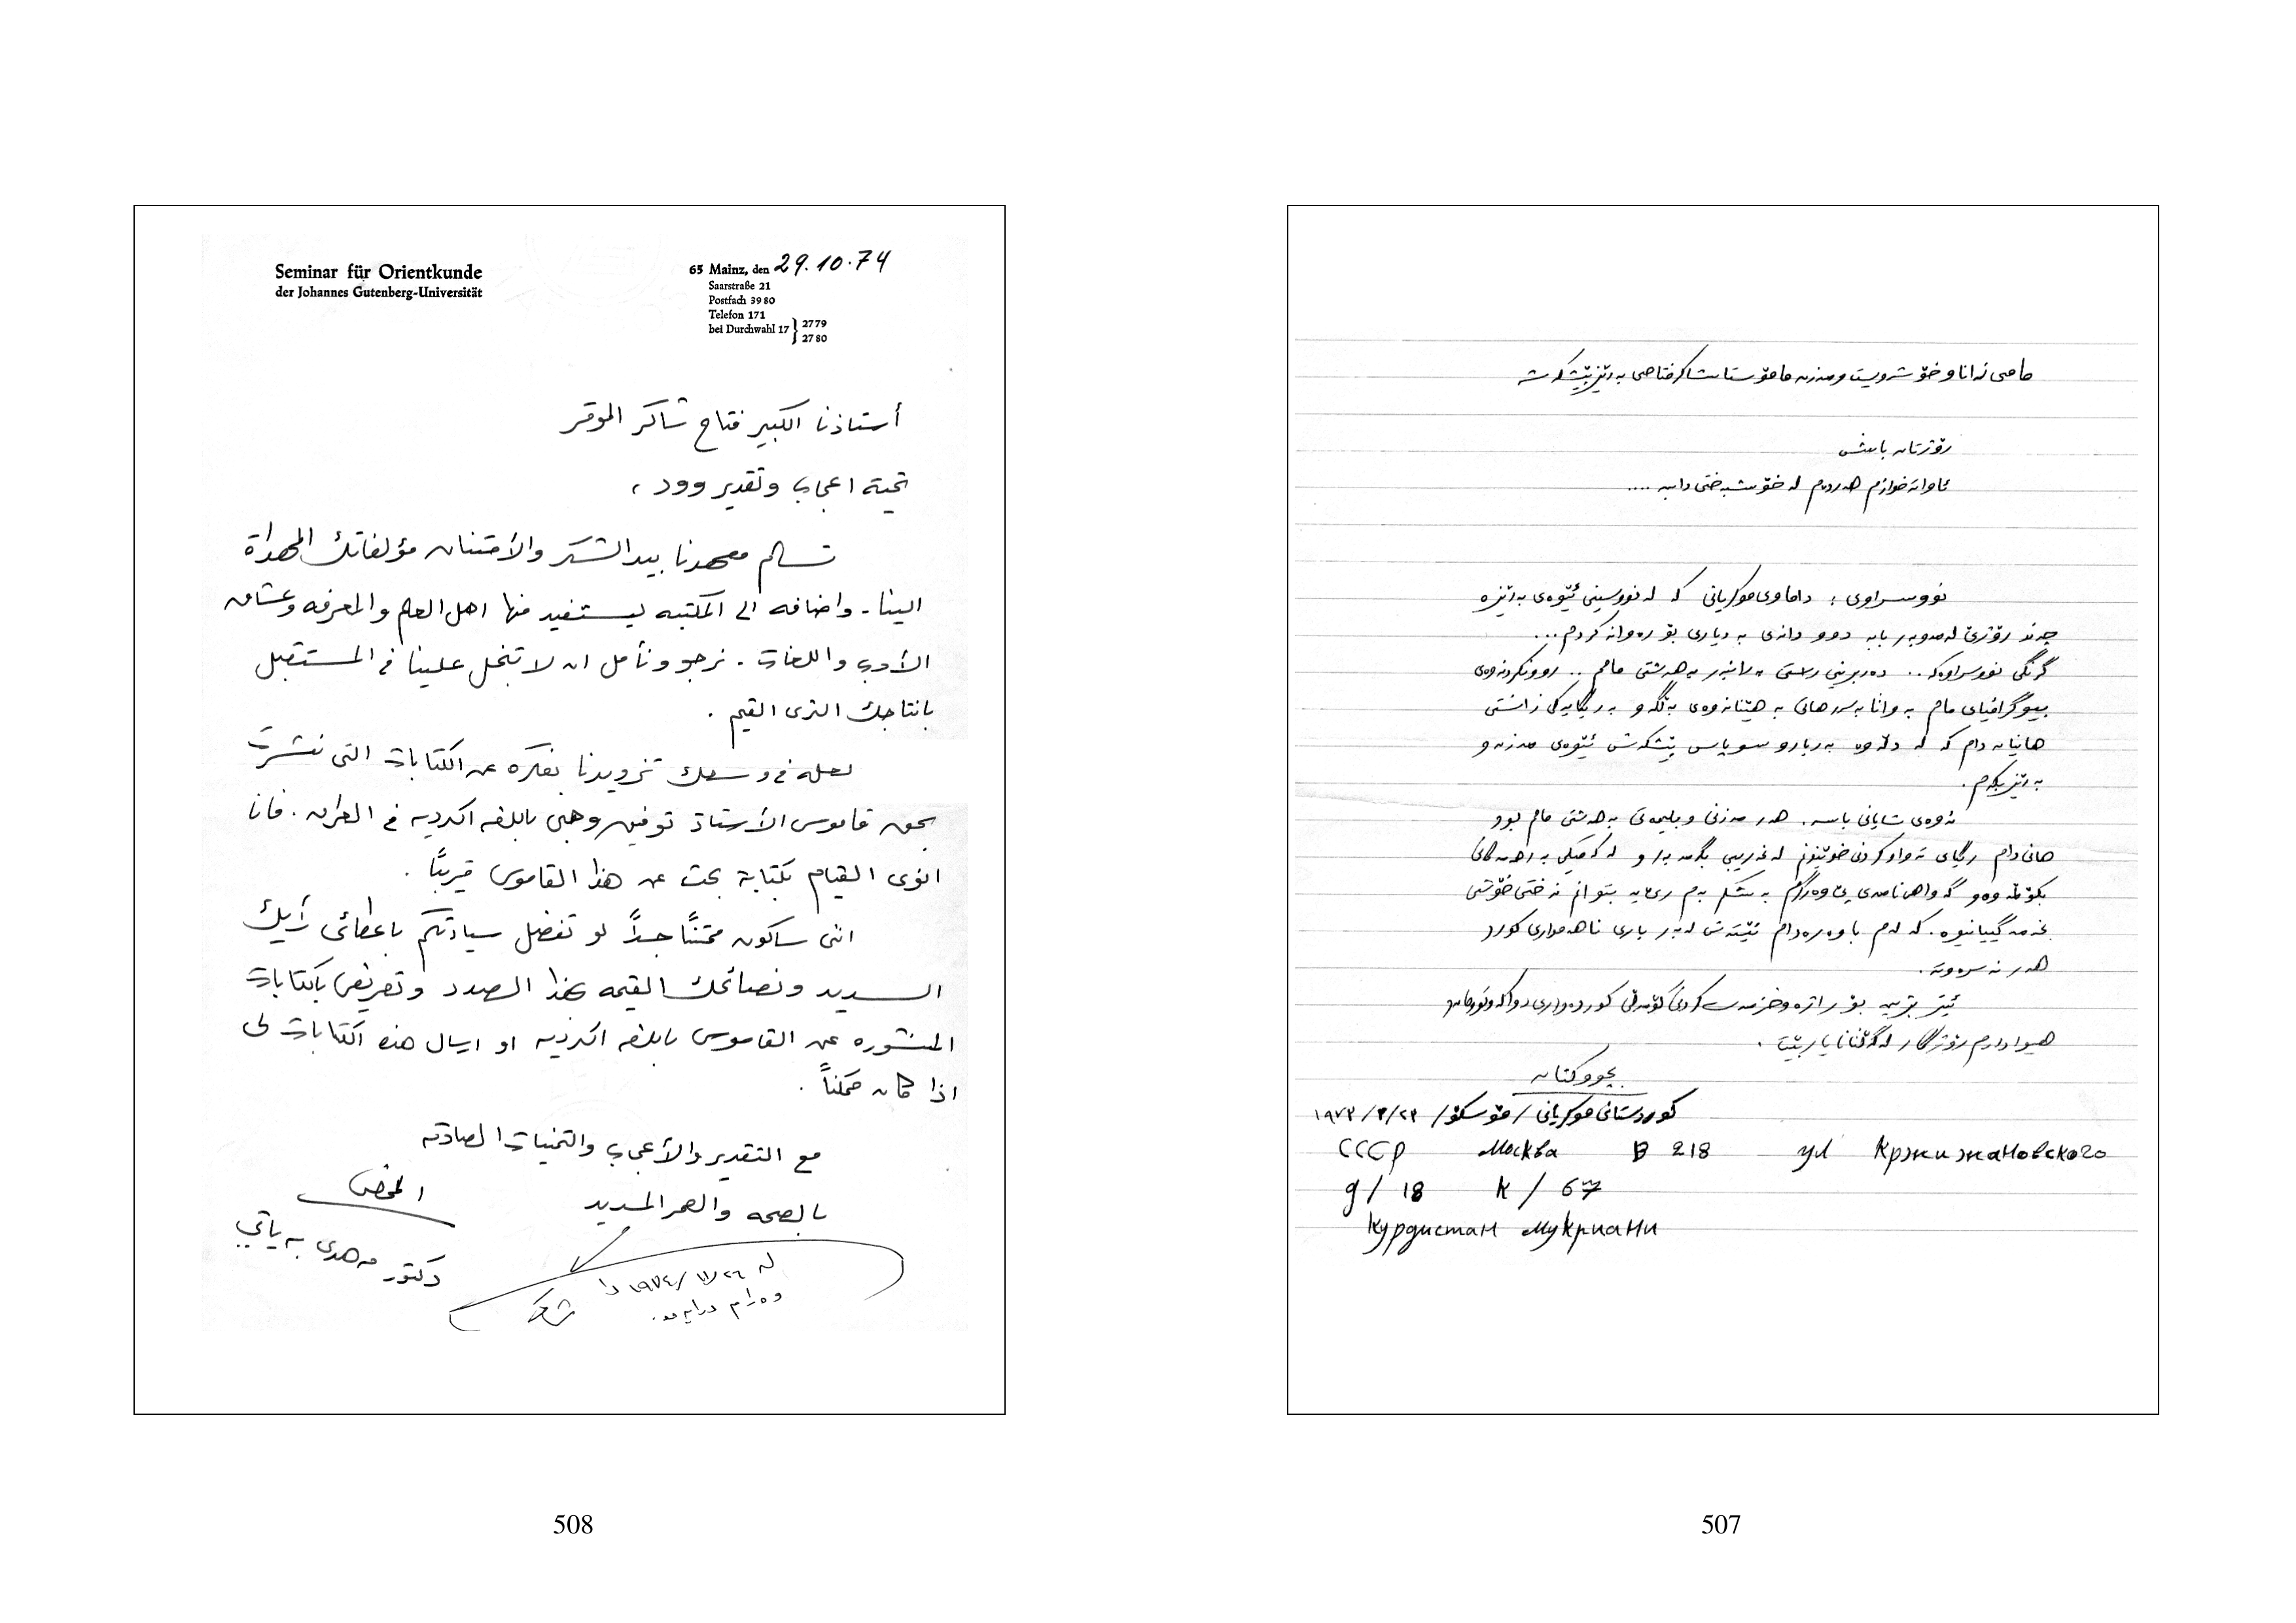 مامی زانا و خۆشەویست و مەزن مامۆستا شاکر فتاحی بەڕێز پێشکەشە
ڕۆژتان باش
ئاواتەخوازم هەردەم لە خۆشبەختی دابن ....
نووسراوی : داماوی موکریانی کە لە نووسینی ئێوەی بەڕێزە
چەند ڕۆژێ لەمەوبەر بابە دوو دانەی بە دیاری بۆ ڕەوانە کردم ...
گرنگی نووسراوەکە .. دەربڕینی ڕاستی بەرانبەر بەهەشتی مامم .. ڕوونکردنەوەی
بیوگرافیای مام بە هێنانەوەی بەڵگە و بە ڕیگایەکی زانستی
هانیان دام کە لە دڵەوە سوپاس پێشکەش ئێوەی مەزن و
بەڕێز بکەم .
ئەوەی شایانی باسە . هەر مەزنی و بلیمەتی بەهەشتی مام بوو
هانی دام ڕیگای تەواو کردنی خوێندنم لە غەریبی بگرمە بەر و
بکۆڵمەوە و گەواهینامەی پێ وەرگرم بەشکم بەم ڕێ یە بتوانم نەختێ خۆشی
کە لەم باوەڕەدام ئێستەش لەبەر باری ناهەمواری کورد
هەر نەسرەوتە .
ئیتر بژین بۆ خزمەت کردنی کۆمەڵی کوردەواری
هیوادارم ڕۆژگار لەگەڵتانا یار بێت .
بچووکتان
کوردستانی موکریانی / مۆسکۆ / ١٩٧٣/٣/٢٣
СССР Москва В 218 ул Кржижановского
д/ 18 к / 67
Курдистан Мукриани
507
Seminar für Orientkunde
der Johannes Gutenberg-Universität
65 Mainz, den 29.10.74
Saarstraße 21
Postfach 39 80
Telefon 171
bei Durchwahl 17 } 27 79
27 80
أستاذنا الكبير فتاح شاكر الموقر
تحية اعجاب وتقدير وود ،
تسلم معهدنا بيد الشكر والأمتنان مؤلفاتك المهداة
الينا . واضافه الى المكتبه ليستفيد منها اهل العلم والمعرفه وعشاق
الأدب واللغات . نرجو ونأمل ان لا تبخل علينا في المستقبل
بانتاجك الثرى القيم .
لعله في وسعك تزويدنا بفكره عن الكتابات التى نشرت
بحق قاموس الأستاذ توفيق وهبي باللغه الكرديه في العراق . فانا
انوى القيام بكتابة بحث عن هذا القاموس قريبًا .
انى ساكون ممتنًا جدًا لو تفضل سيادتكم باعطائى رأيك
السديد ونصائحك القيمه بهذا الصدد وتعريفى بالكتابات
المنشوره عن القاموس باللغه الكرديه او ارسال هذه الكتابات لى
اذا كان ممكنًا .
مع التقدير والأعجاب والتمنيات الصادقه
بالصحه والعمر المديد
المخلص
دكتور مەهدى بەياتي
لە ١٩٧٤/١١/٢٦ دا
وەرام درايەوە .
شاكر
508